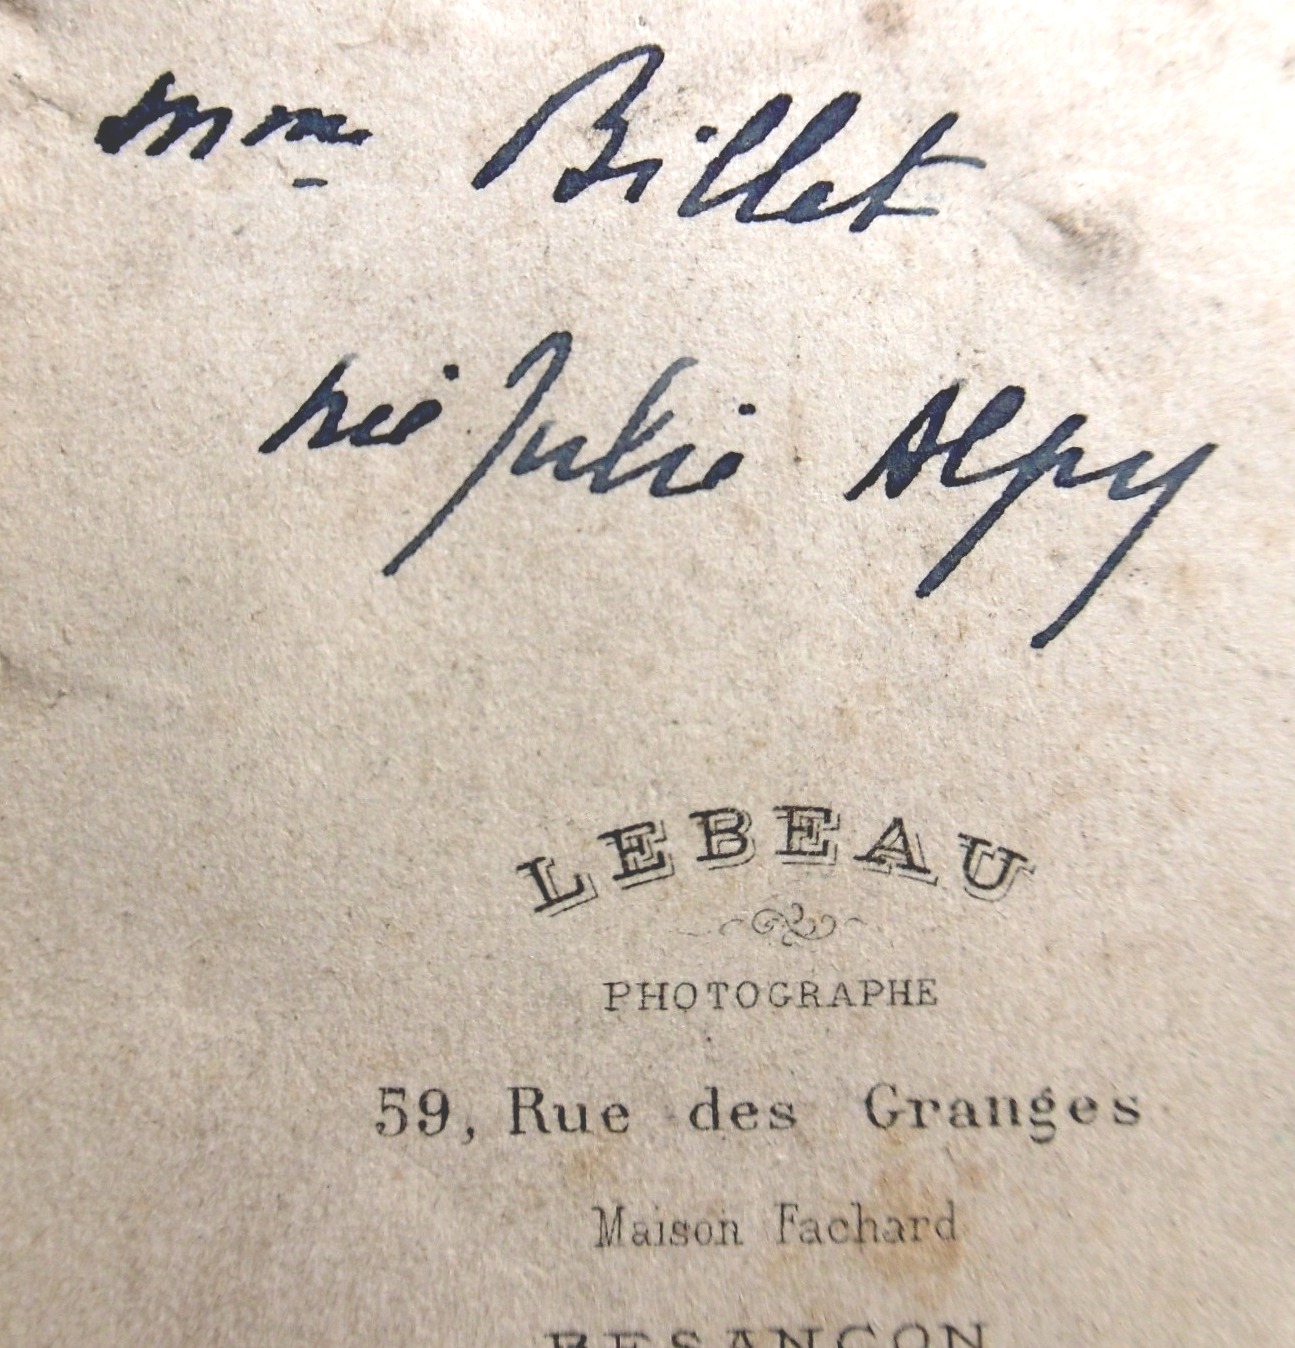 Mme Billet
née Julie Alpy
LEBEAU
PHOTOGRAPHE
59, Rue des Granges
Maison Fachard
BESANÇON